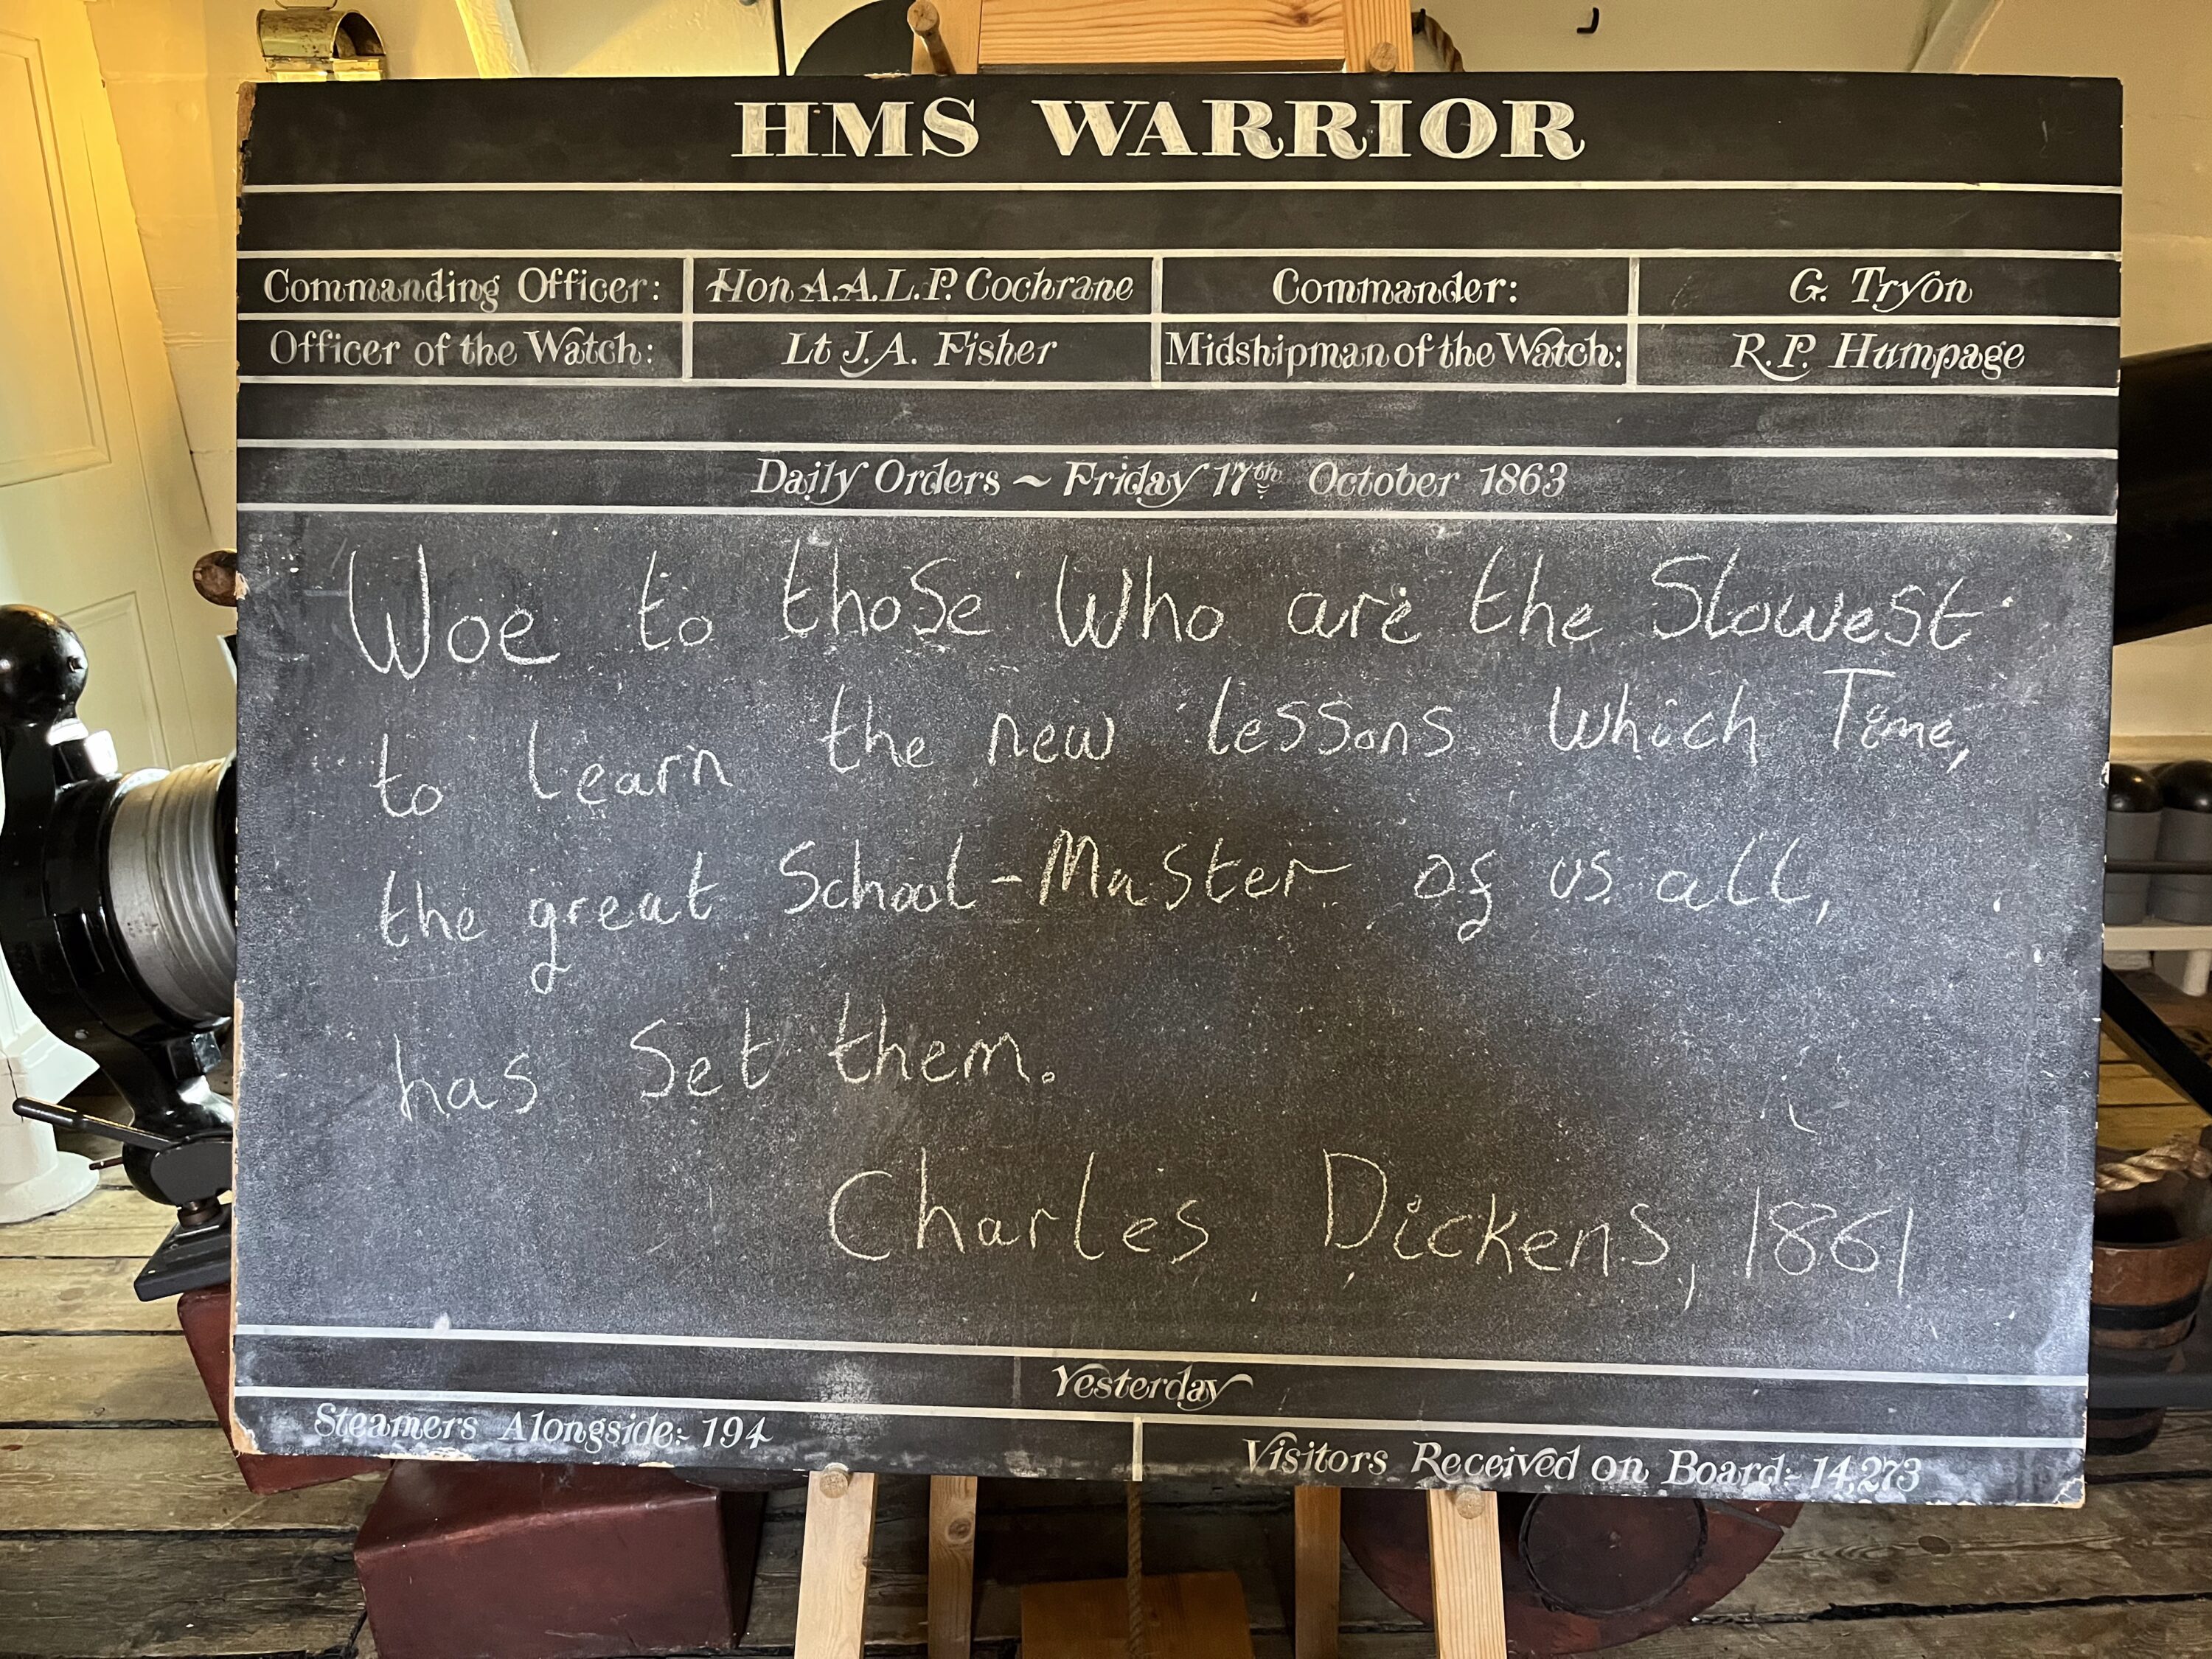 HMS WARRIOR
Commanding Officer: Hon A.A.L.P. Cochrane Commander: G. Tryon
Officer of the Watch: Lt J.A. Fisher Midshipman of the Watch: R.P. Humpage
Daily Orders ~ Friday 17th October 1863
Woe to those Who are the Slowest
to learn the new lessons which Time,
the great School-Master of us all,
has Set them.
Charles Dickens, 1861
Yesterday
Steamers Alongside:- 194 Visitors Received on Board:- 14,273